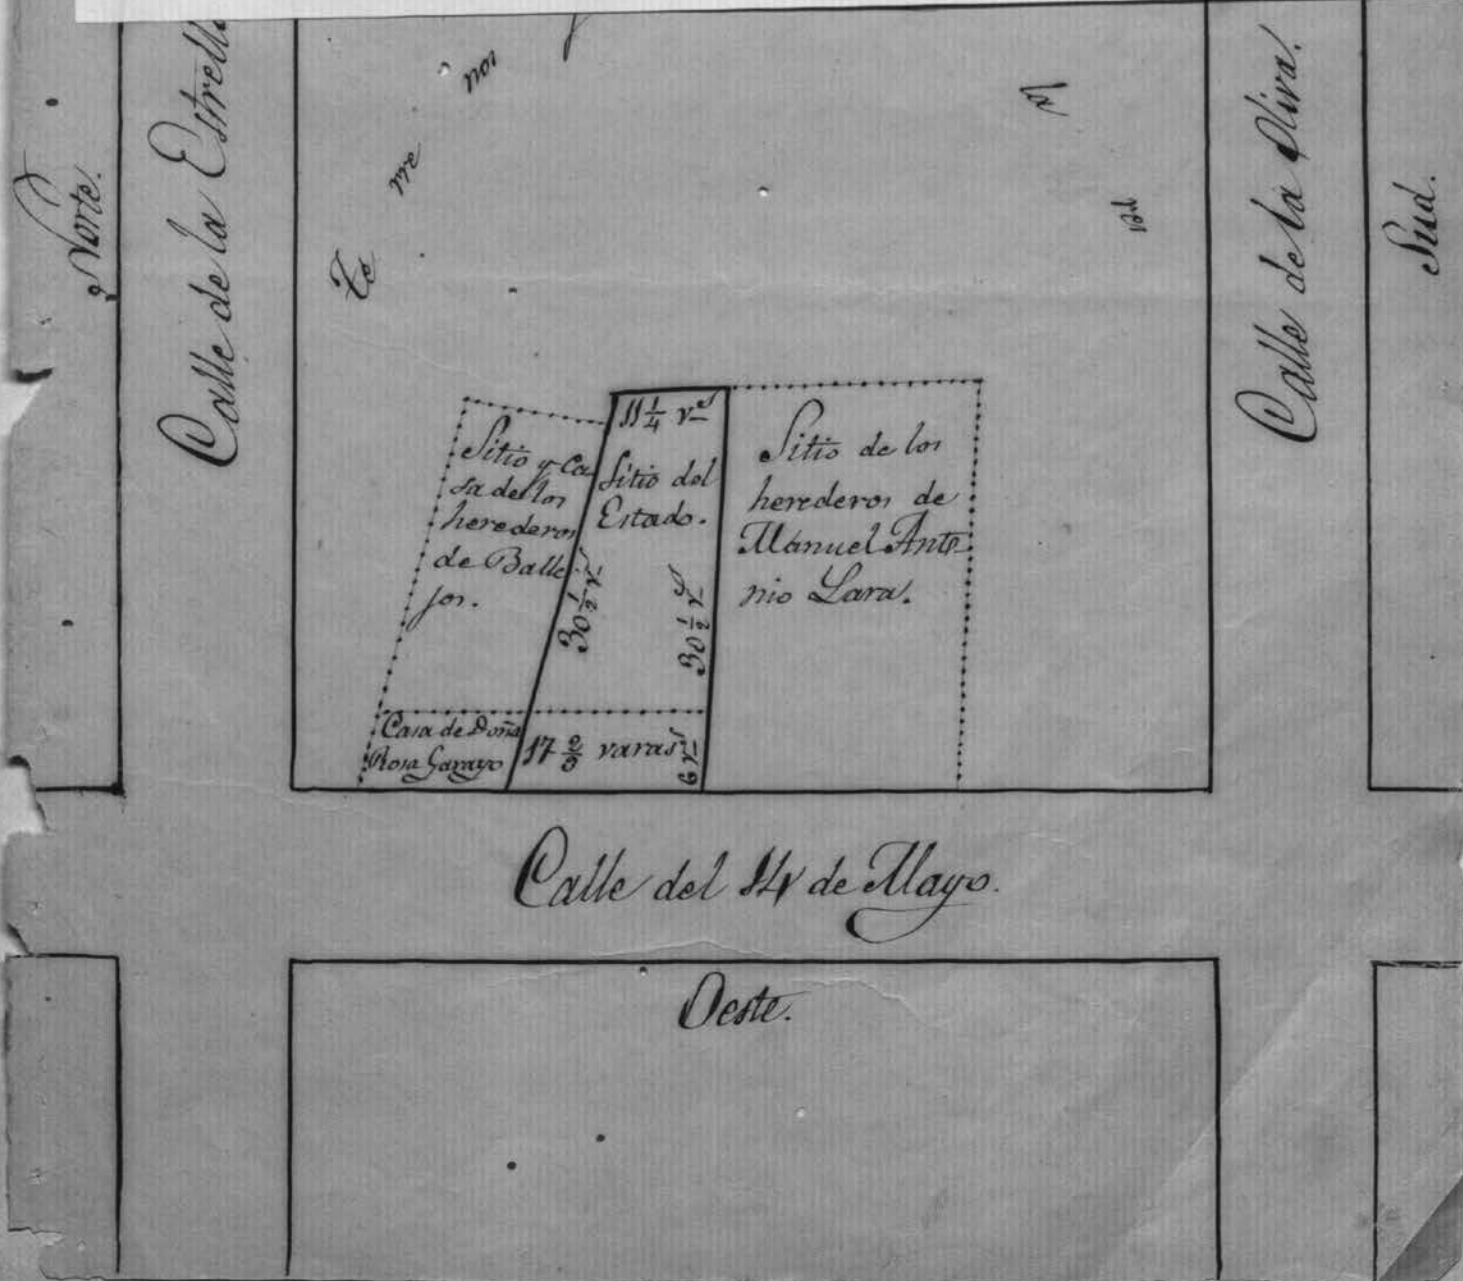 Norte.
Calle de la Estrella
Te
rre
nos
Calle de la Oliva.
Sud.
11 1/4 vs
Sitio y Ca
sa de los
herederos
de Balle
jos.
Sitio del
Estado.
30 1/2 vs
30 1/2 vs
Sitio de los
herederos de
Manuel Anto
nio Lara.
Casa de Doña
Rosa Garayo
17 2/3 varas
6 vs
Calle del 14 de Mayo.
Oeste.